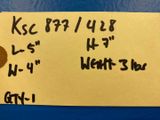 KSC 877/428
L-5" H-7"
W-4" Weight-3 lbs
QTY-1